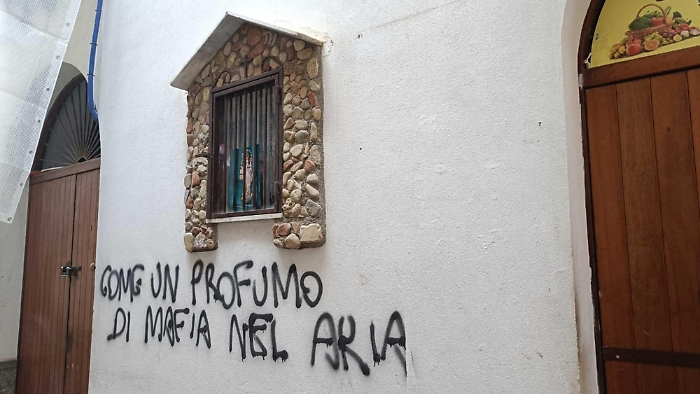 COME UN PROFUMO
DI MAFIA NEL ARIA